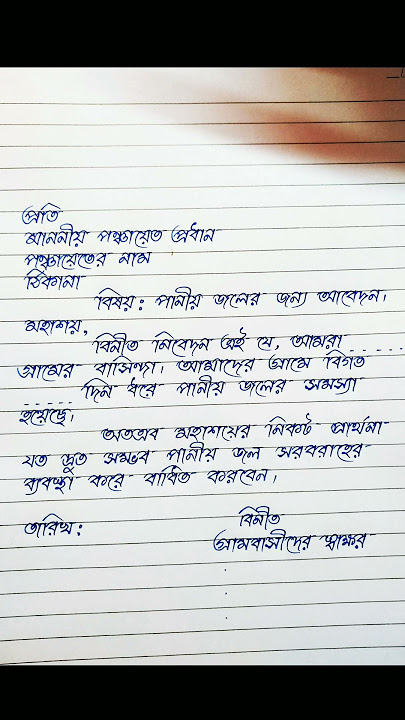 প্রতি
মাননীয় পঞ্চায়েত প্রধান
পঞ্চায়েতের নাম
ঠিকানা
বিষয় : পানীয় জলের জন্য আবেদন।
মহাশয়,
বিনীত নিবেদন এই যে, আমরা ........
গ্রামের বাসিন্দা। আমাদের গ্রামে বিগত
...... দিন ধরে পানীয় জলের সমস্যা
হয়েছে।
অতএব মহাশয়ের নিকট প্রার্থনা
যত দ্রুত সম্ভব পানীয় জল সরবরাহের
ব্যবস্থা করে বাধিত করবেন।
তারিখ :
বিনীত
গ্রামবাসীদের স্বাক্ষর